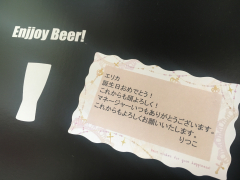 Enjjoy Beer!
エリカ
誕生日おめでとう！
これからも頑よろしく！
マネージャーいつもありがとうございます。
これからもよろしくお願いいたします。
りつこ